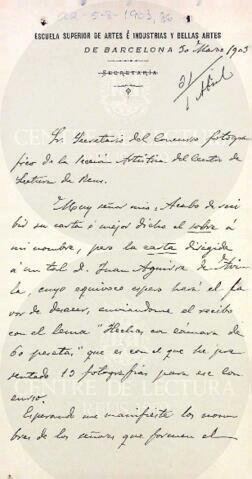 CR-5-8-1903,36
ESCUELA SUPERIOR DE ARTES É INDUSTRIAS Y BELLAS ARTES
DE BARCELONA 30 Marzo 1903
SECRETARÍA
31/
1 Abril
Sr Secretario del Concurso fotográ-
fico de la Sección Artística del Centro de
Lectura de Reus.
Muy señor mio: Acabo de reci-
bir su carta ó mejor dicho el sobre á
mi nombre, pero la carta dirigida
á un tal D. Juan Aguirre de
la, cuyo equivoco espero hará el fa-
vor de deshacer, enviándome el recibo
con el lema "Hechas en cámara de
60 pesetas," que es con el que he pre-
sentado 13 fotografías para ese con-
curso.
Esperando me manifieste los nom-
bres de los señores que forman el
CENTRE DE LECTURA
CENTRE DE LECTURA